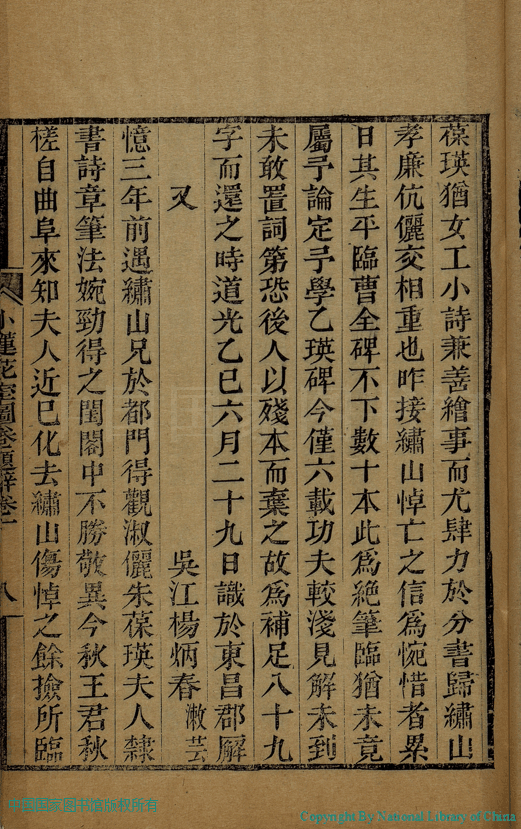 葆瑛猶女工小詩兼善繪事而尤肆力於分書歸繡山
孝廉伉儷交相重也昨接繡山悼亡之信爲惋惜者累
日其生平臨曹全碑不下數十本此爲絶筆臨猶未竟
屬予論定予學乙瑛碑今僅六載功夫較淺見解未到
未敢置詞第恐後人以殘本而棄之故爲補足八十九
字而還之時道光乙巳六月二十九日識於東昌郡廨
又
吳江楊炳春漱芸
憶三年前遇繡山兄於都門得觀淑儷朱葆瑛夫人隸
書詩章筆法婉勁得之閨閣中不勝敬異今秋王君秋
槎自曲阜來知夫人近已化去繡山傷悼之餘撿所臨
小蓮花室圖卷題辭卷一
八
中国国家图书馆版权所有
Copyright By National Library of China